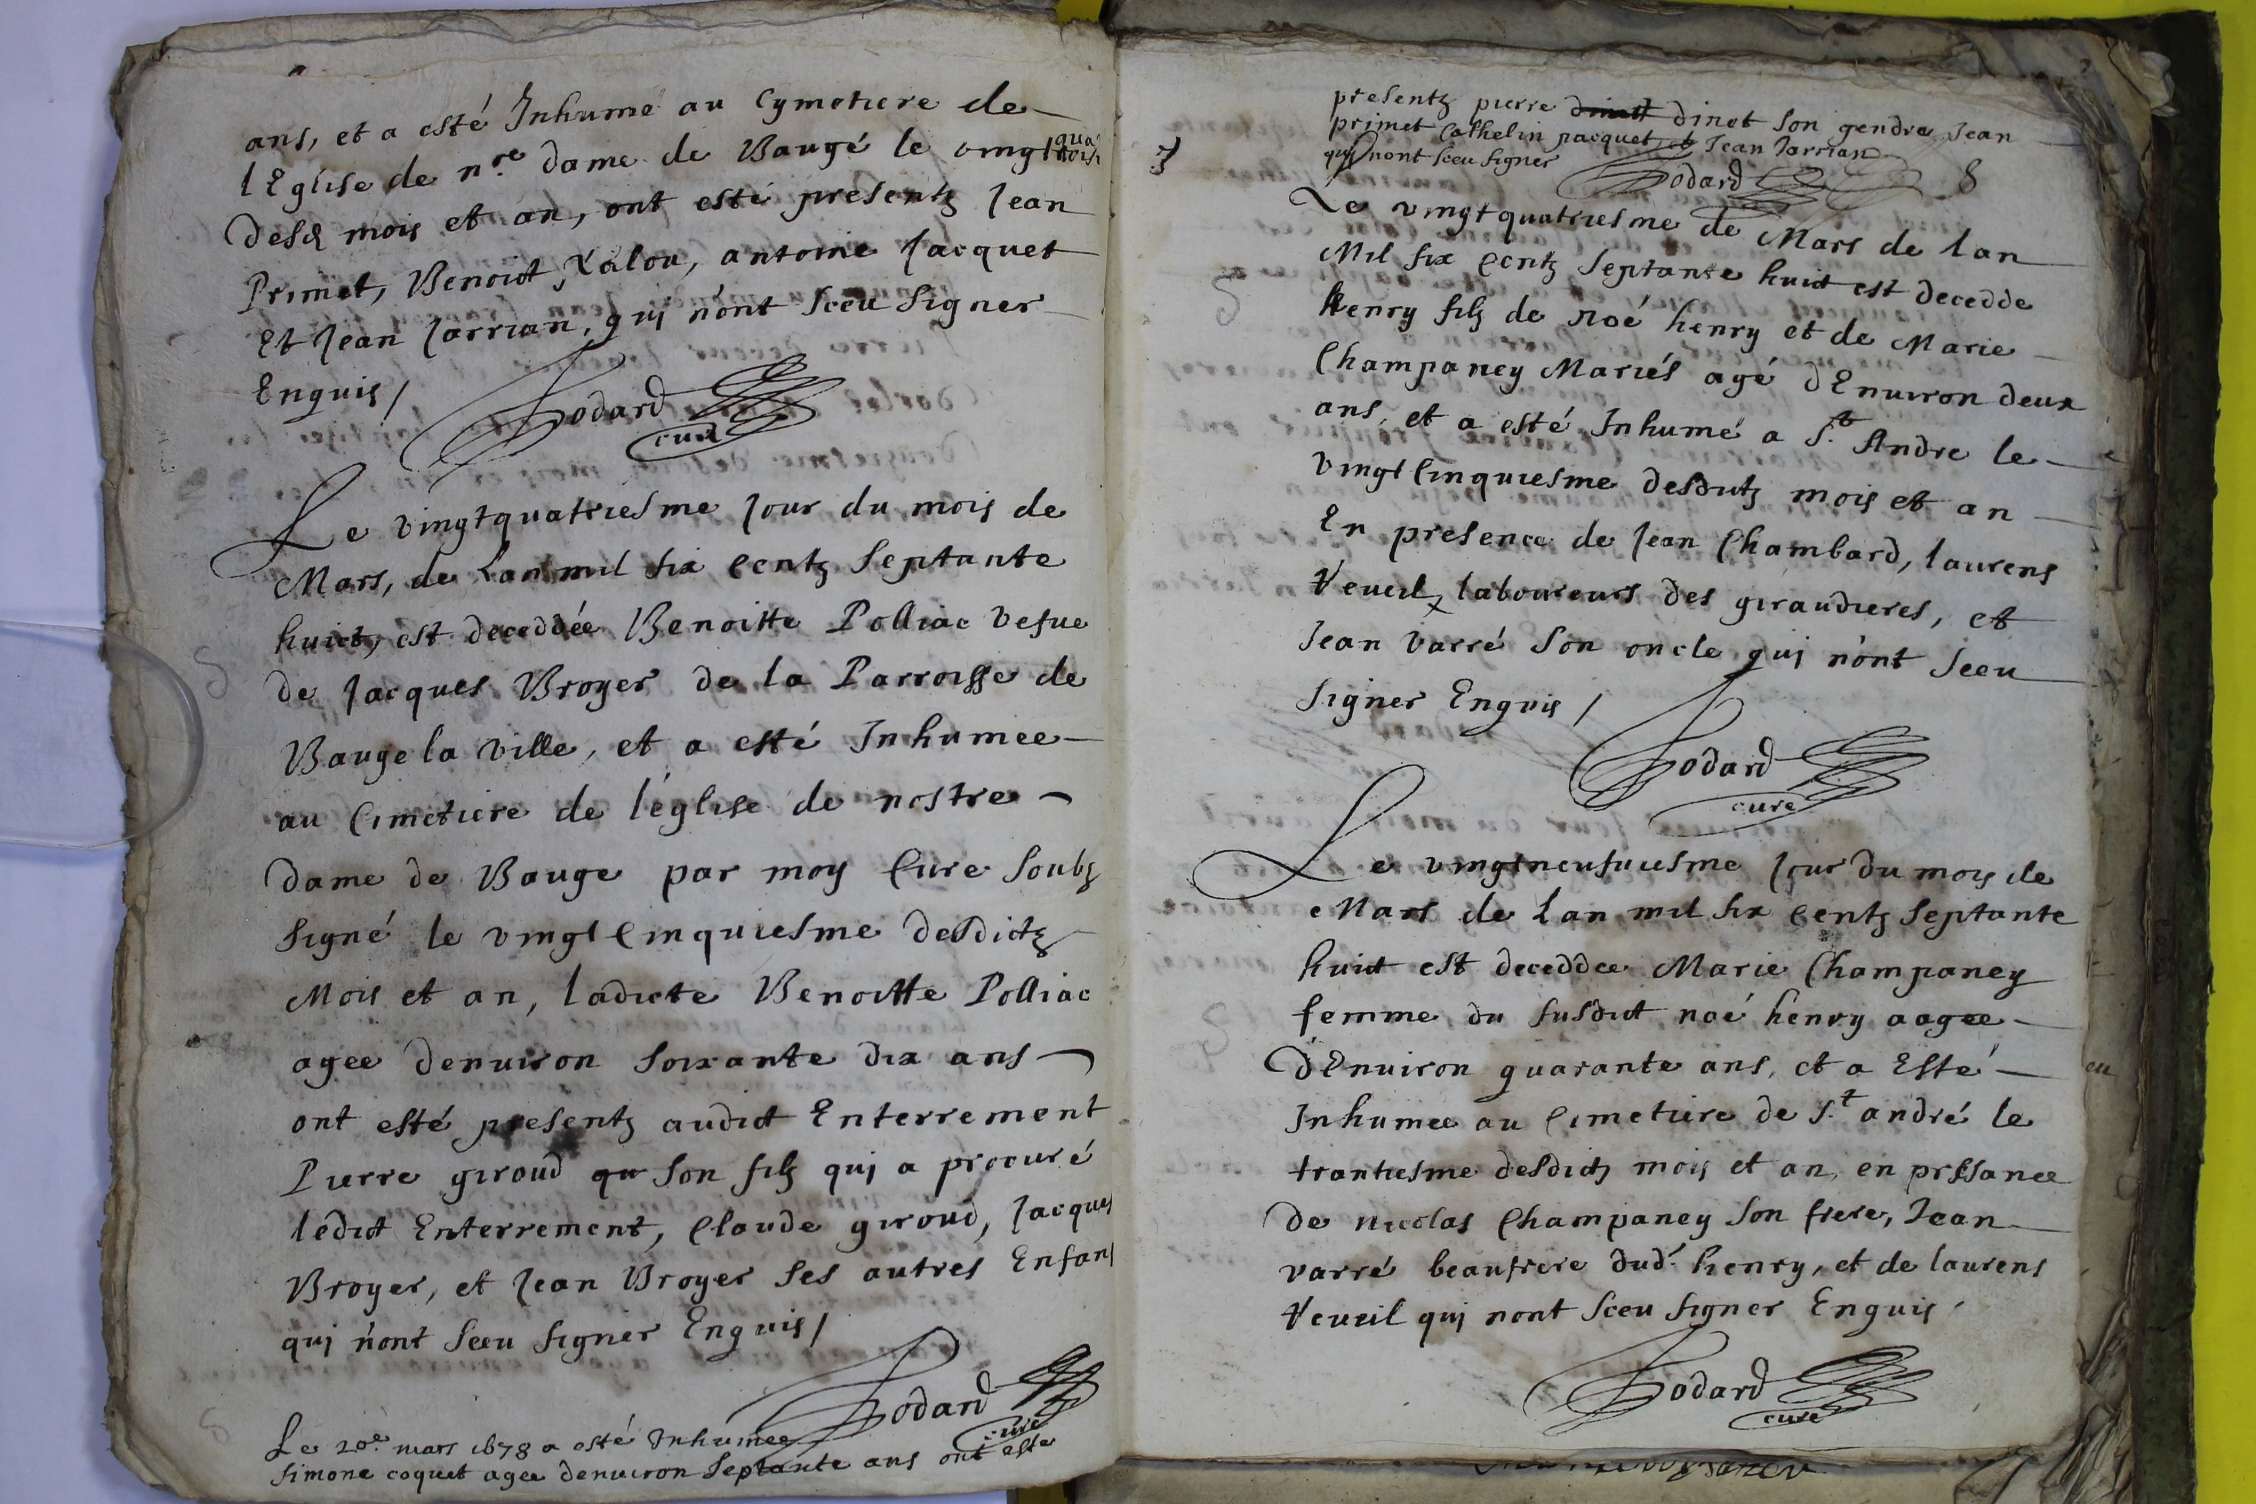 ans, et a esté Inhume au Cymetiere de
l Eglise de n.re dame de Baugé le vingt qua
desd mois et an, ont esté presentz Jean
Primet, Benoict Valou, antoine Jacquet
Et Jean Jarrian, qui n'ont sceu signer
Enquis /
Godard
curé
Le vingtquatriesme Jour du mois de
Mars, de Lan mil six Centz septante
huict, est deceddée Benoitte Polliac vefue
de Jacques Broyer de la Parroisse de
Bauge la ville, et a esté Inhumee
au Cimetiere de l'église de nostre
dame de Bauge par moy Cure soubz
signé le vingt Cinquiesme desdictz
Mois et an, ladicte Benoitte Polliac
agee denuiron soixante dix ans
ont esté presentz audict Enterrement
Pierre giroud son filz qui a procuré
ledict Enterrement, Claude giroud, Jacques
Broyer, et Jean Broyer ses autres Enfans
qui n'ont sceu signer Enquis /
Godard
curé
Le 20e. mars 1678 a esté Inhumee
simone coquet agee denuiron septante ans ont esté
presentz pierre dinet dinet son gendre Jean
primet Cathelin jacquet et Jean Jarrian
qui nont sceu signer
Godard
8
Le vingtquatriesme de Mars de lan
Mil six Centz septante huict est decedde
henry filz de noé henry et de Marie
Champaney Mariés agé d'Enuiron deux
ans, et a esté Inhumé a S.t Andre le
vingt Cinquiesme desdictz mois et an
En presence de Jean Chambard, laurens
Veueil, laboureurs des giraudieres, et
Jean varré son oncle qui n'ont sceu
signer Enquis /
Godard
cure
Le vingtneufuiesme Jour du mois de
Mars de Lan mil six Centz septante
huict est deceddee Marie Champaney
femme du susdict noé henry aagee
d'Enuiron quarante ans, et a Esté
Inhumee au Cimetiere de S.t andré le
trantiesme desdictz mois et an, en pressance
de nicolas Champaney son frere, Jean
varré beaufrere dud. henry, et de laurens
Veueil qui nont sceu signer Enquis
Godard
cure